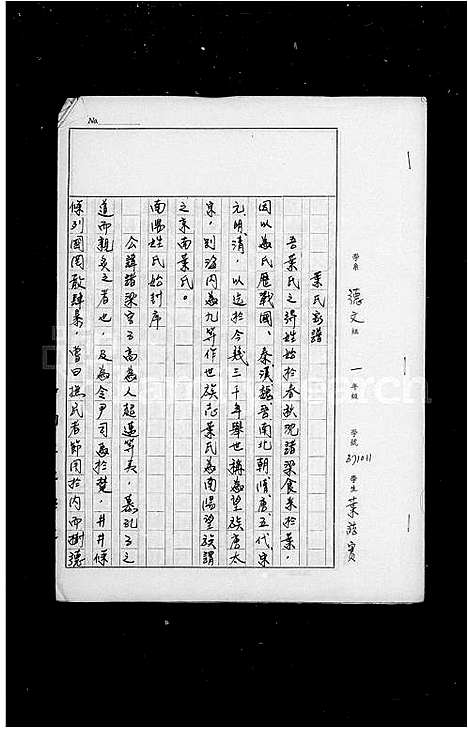 No.
學系 德文組 一年級 學號 371011 學生 葉蔣賓
葉氏家譜
吾葉氏之得姓始於春秋沈諸梁食采於葉，
因以為氏歷戰國、秦漢魏、晉南北朝、隋、唐、五代宋
元、明、清，以迄於今幾三千年舉世稱為望族唐太
宗，別海內為九等作世族志葉氏為南陽望族謂
之京南葉氏。
南陽姓氏始封序
公諱諸梁字子高為人超邁等夷，慕孔子之
道而親炙之者也，及為令尹司政於楚，井井條
條列國罔敢肆暴，嘗曰撫民者節用於內而樹德